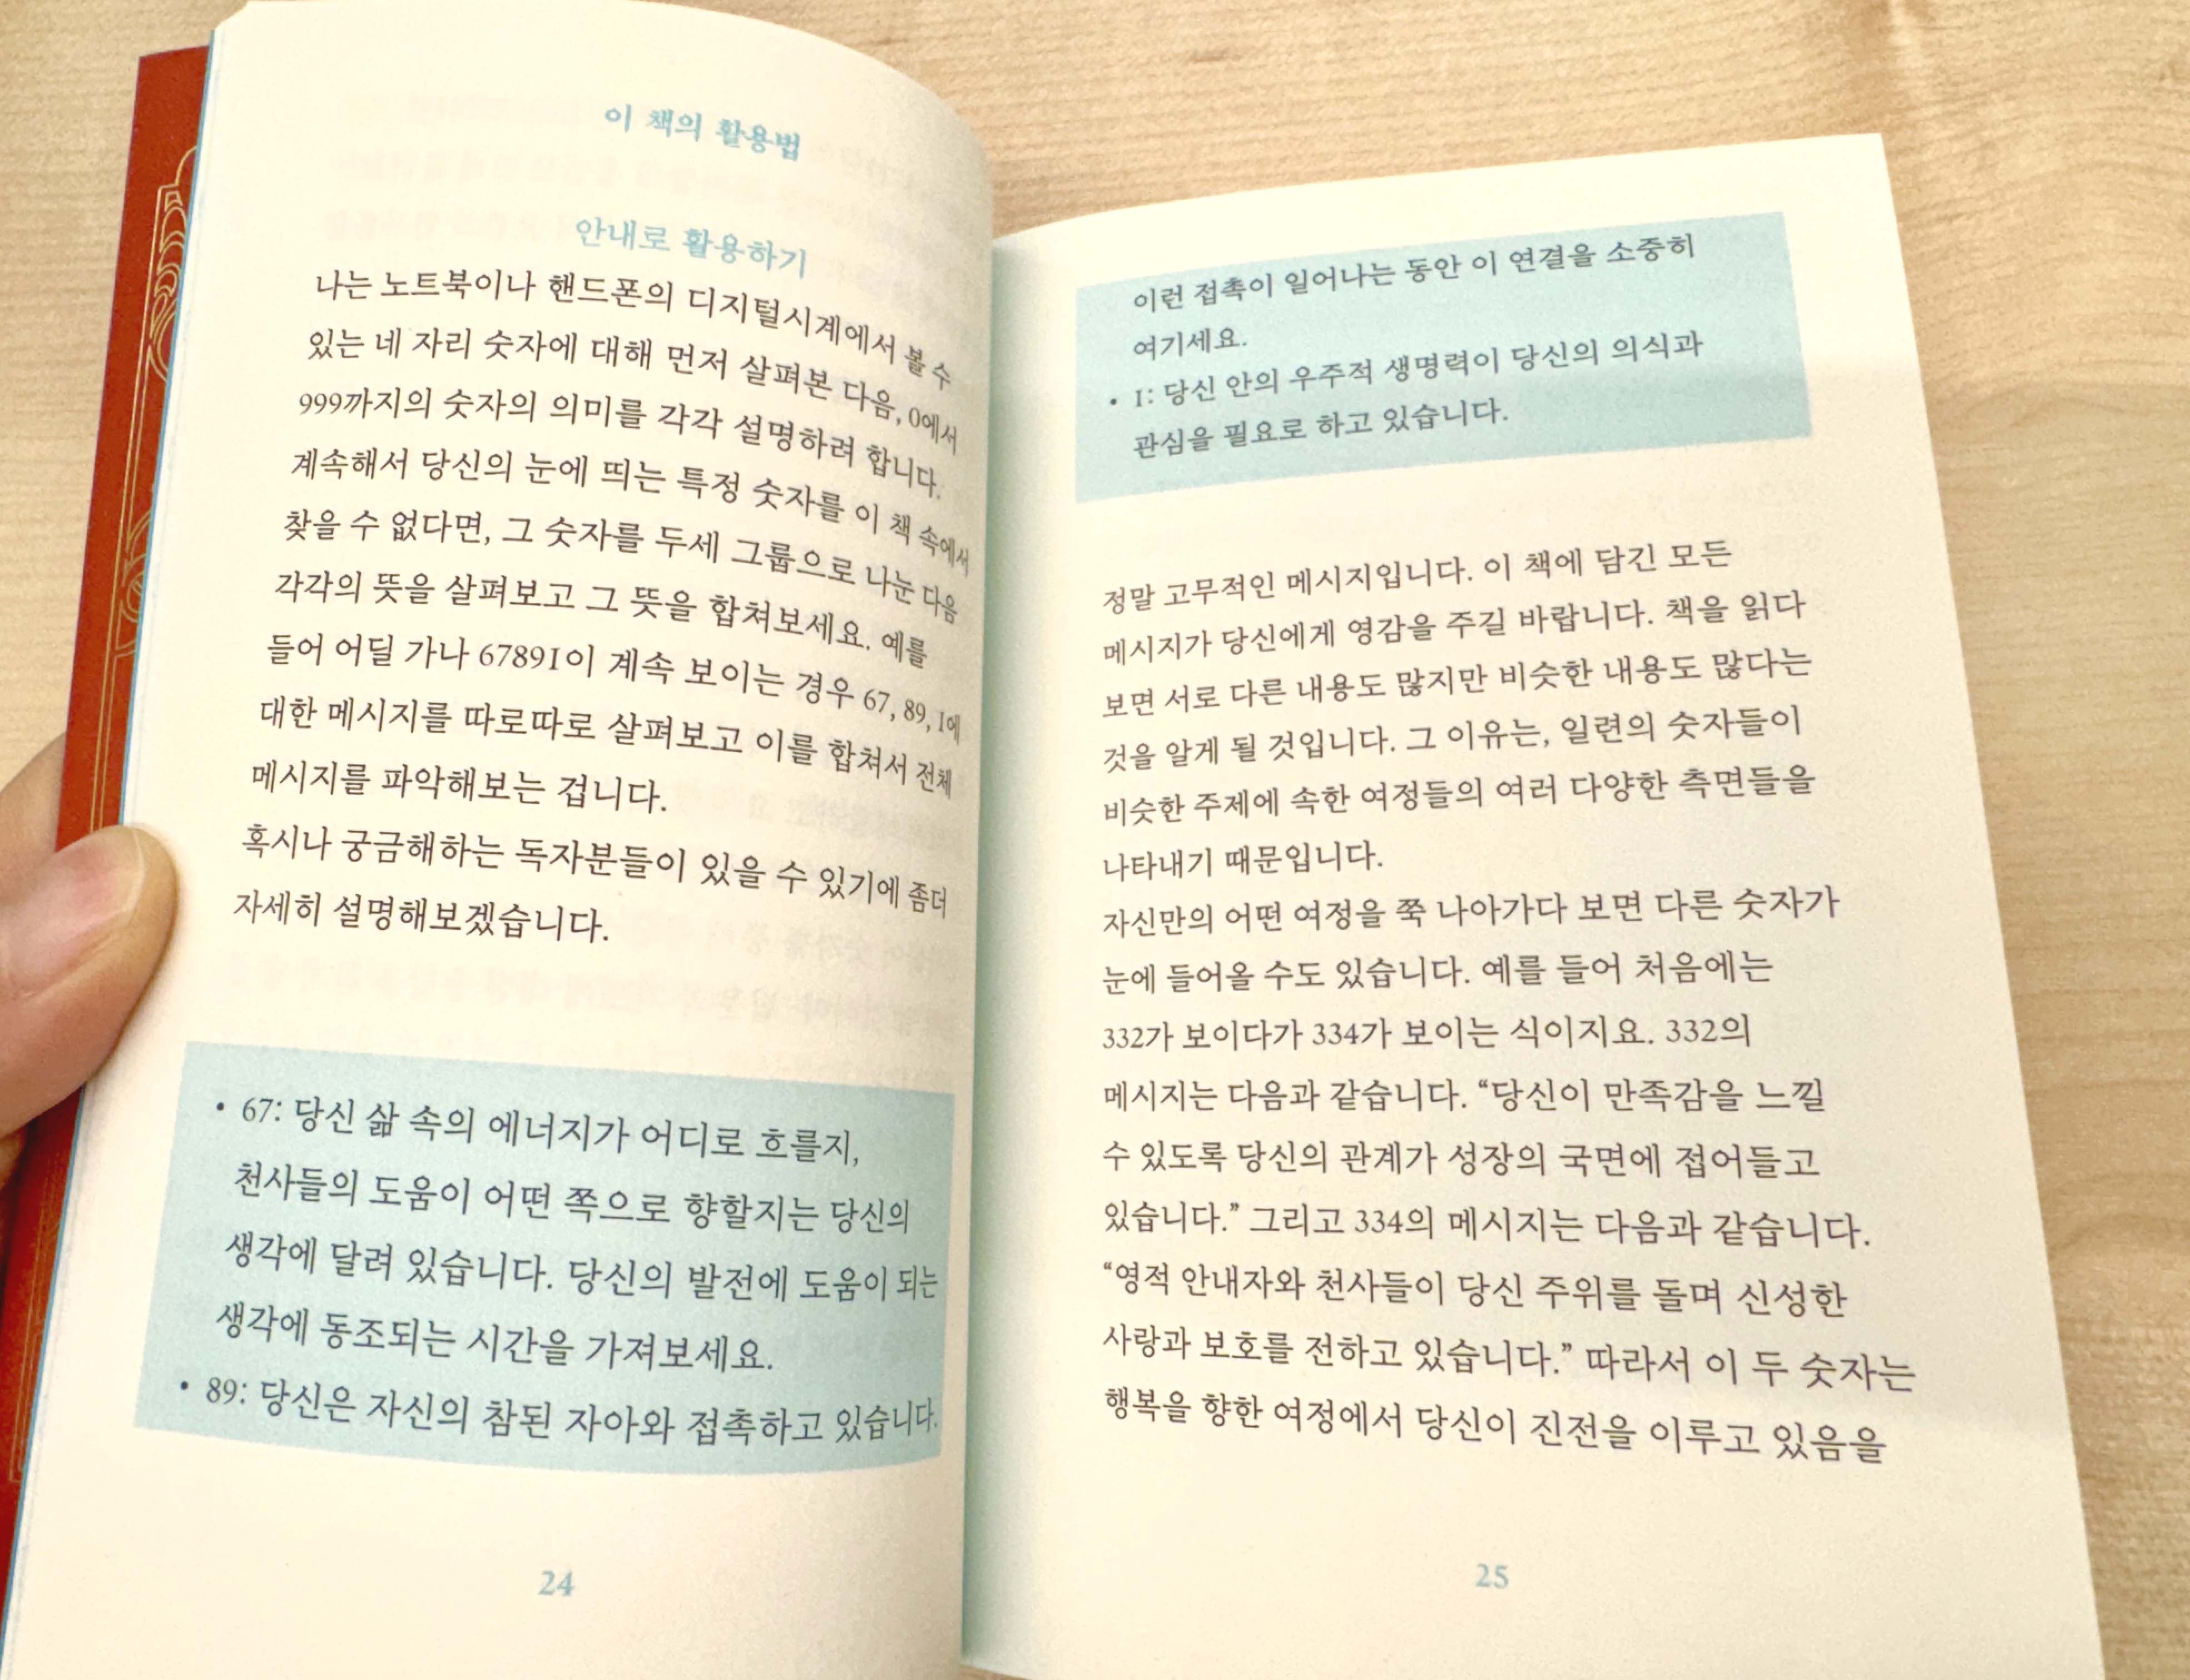 이 책의 활용법
안내로 활용하기
나는 노트북이나 핸드폰의 디지털시계에서 볼 수
있는 네 자리 숫자에 대해 먼저 살펴본 다음, 0에서
999까지의 숫자의 의미를 각각 설명하려 합니다.
계속해서 당신의 눈에 띄는 특정 숫자를 이 책 속에서
찾을 수 없다면, 그 숫자를 두세 그룹으로 나눈 다음
각각의 뜻을 살펴보고 그 뜻을 합쳐보세요. 예를
들어 어딜 가나 67891이 계속 보이는 경우 67, 89, 1에
대한 메시지를 따로따로 살펴보고 이를 합쳐서 전체
메시지를 파악해보는 겁니다.
혹시나 궁금해하는 독자분들이 있을 수 있기에 좀더
자세히 설명해보겠습니다.
• 67: 당신 삶 속의 에너지가 어디로 흐를지,
천사들의 도움이 어떤 쪽으로 향할지는 당신의
생각에 달려 있습니다. 당신의 발전에 도움이 되는
생각에 동조되는 시간을 가져보세요.
• 89: 당신은 자신의 참된 자아와 접촉하고 있습니다.
24
이런 접촉이 일어나는 동안 이 연결을 소중히
여기세요.
• 1: 당신 안의 우주적 생명력이 당신의 의식과
관심을 필요로 하고 있습니다.
정말 고무적인 메시지입니다. 이 책에 담긴 모든
메시지가 당신에게 영감을 주길 바랍니다. 책을 읽다
보면 서로 다른 내용도 많지만 비슷한 내용도 많다는
것을 알게 될 것입니다. 그 이유는, 일련의 숫자들이
비슷한 주제에 속한 여정들의 여러 다양한 측면들을
나타내기 때문입니다.
자신만의 어떤 여정을 쭉 나아가다 보면 다른 숫자가
눈에 들어올 수도 있습니다. 예를 들어 처음에는
332가 보이다가 334가 보이는 식이지요. 332의
메시지는 다음과 같습니다. “당신이 만족감을 느낄
수 있도록 당신의 관계가 성장의 국면에 접어들고
있습니다.” 그리고 334의 메시지는 다음과 같습니다.
“영적 안내자와 천사들이 당신 주위를 돌며 신성한
사랑과 보호를 전하고 있습니다.” 따라서 이 두 숫자는
행복을 향한 여정에서 당신이 진전을 이루고 있음을
25